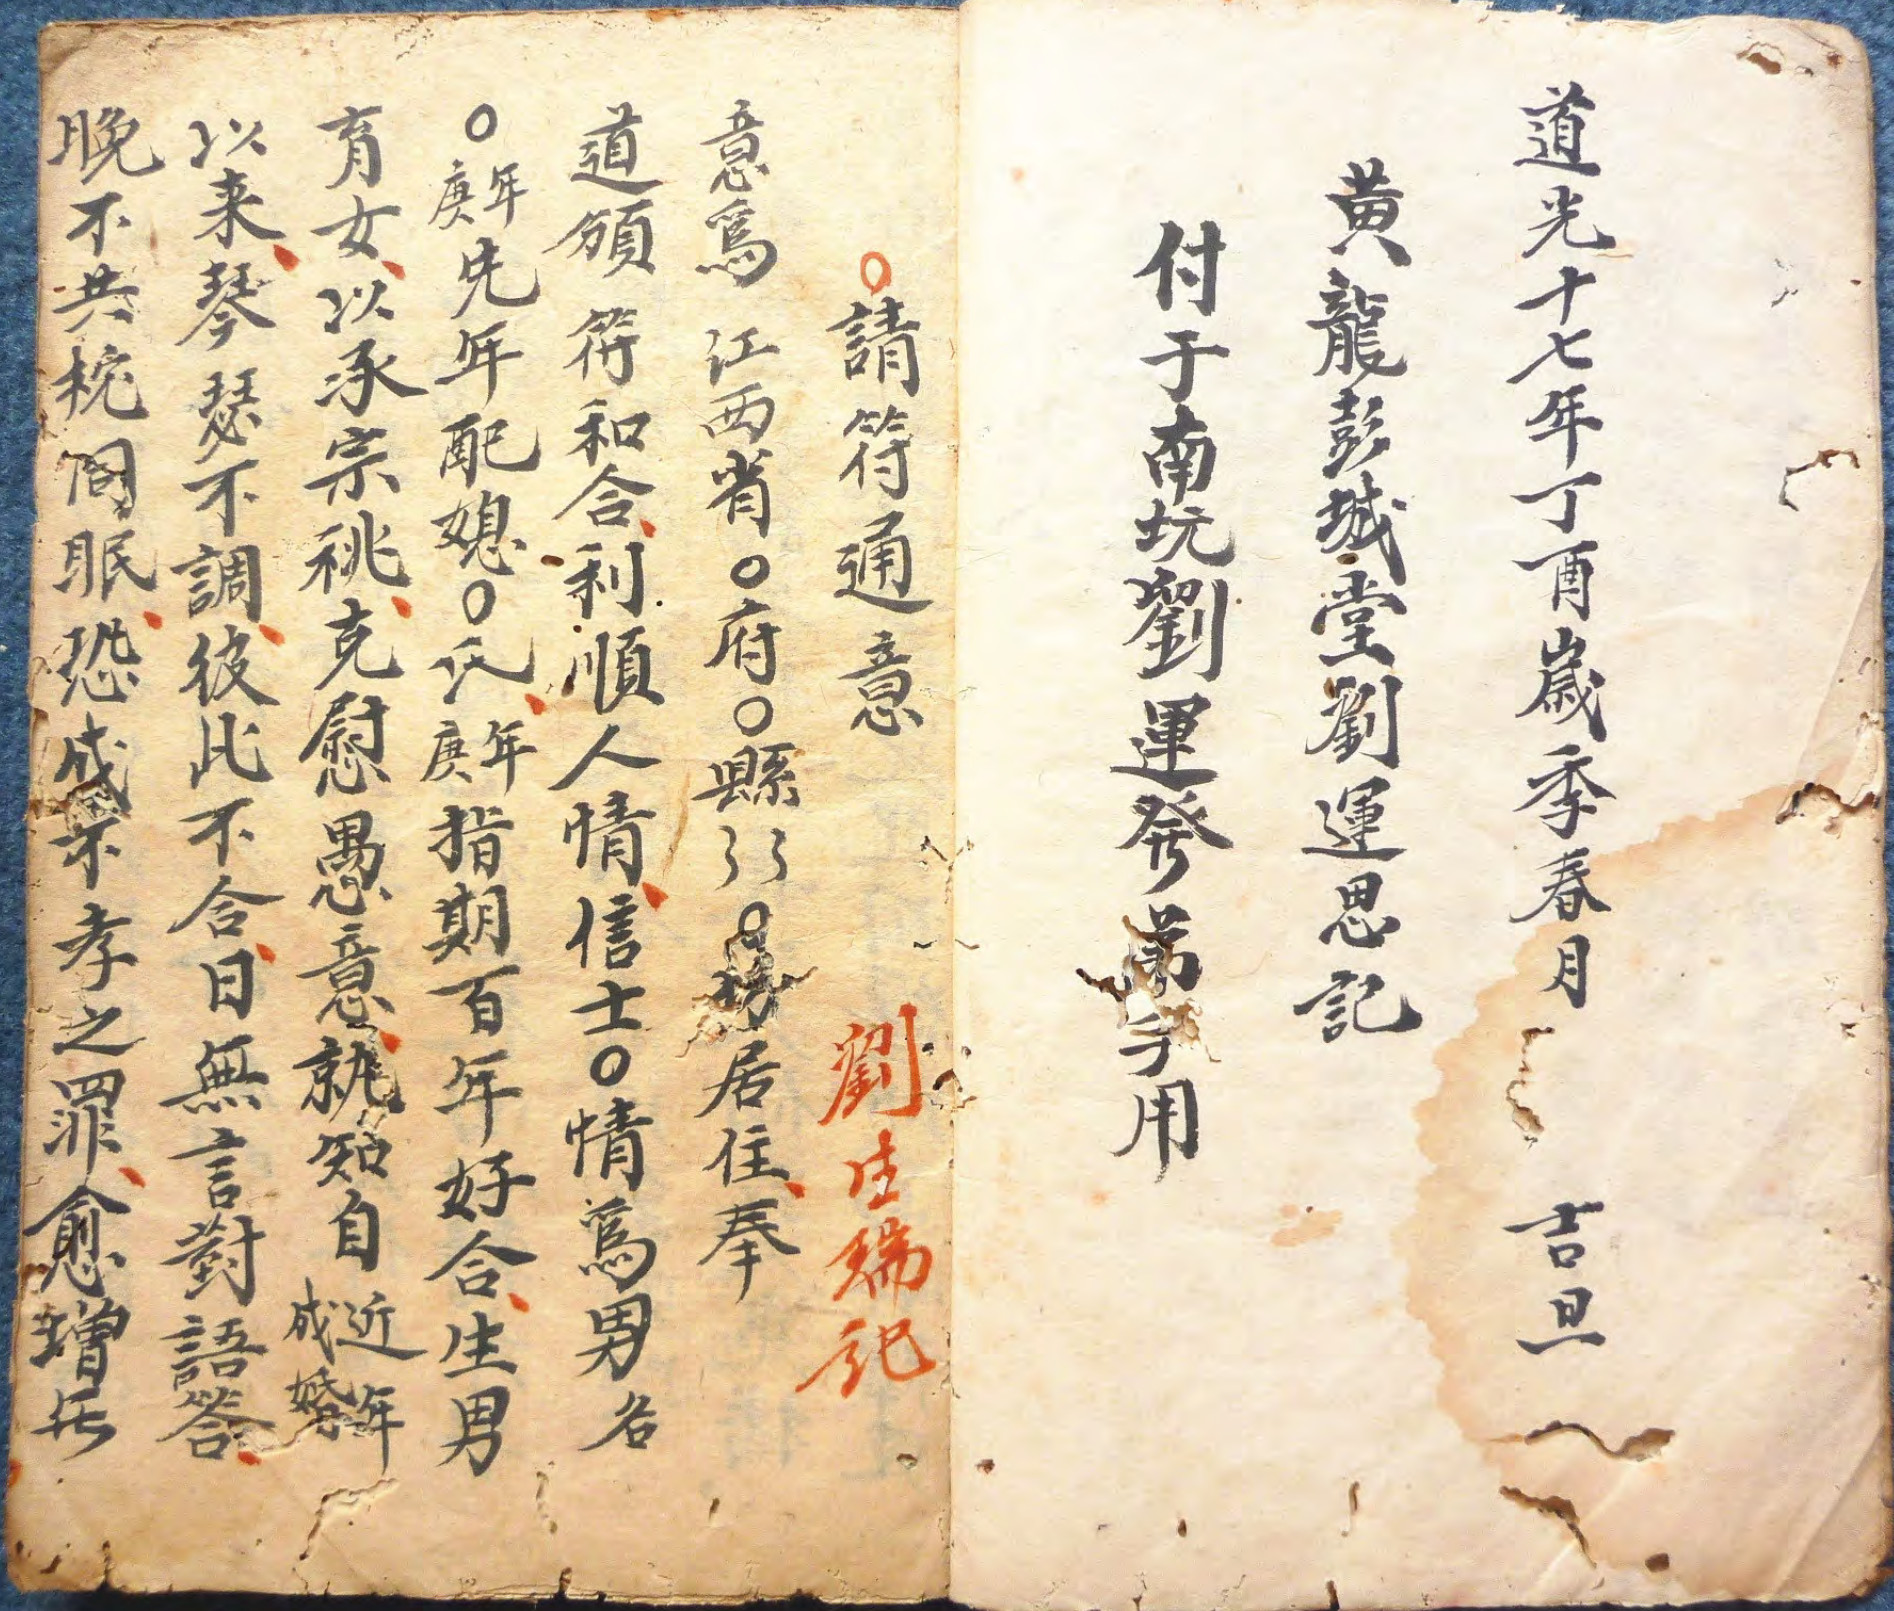 道光十七年丁酉歲季春月 吉旦
黄龍彭城堂劉運思記
付于南坑劉運發弟子用
○請符通意 劉生瑞記
意爲 江西省○府○縣 ○坊居住奉
道頒符和合利順人情信士○情爲男名
○年庚先年配媳○氏年庚指期百年好合生男
育女以承宗祧克慰愚意孰知自近年成婚
以来琴瑟不調彼此不合日無言對語答
晚不共枕同眠恐成不孝之罪愈增